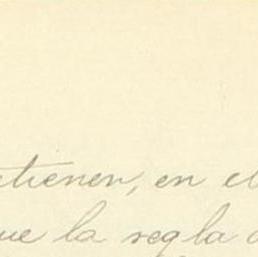 etienen, en el
ue la regla d